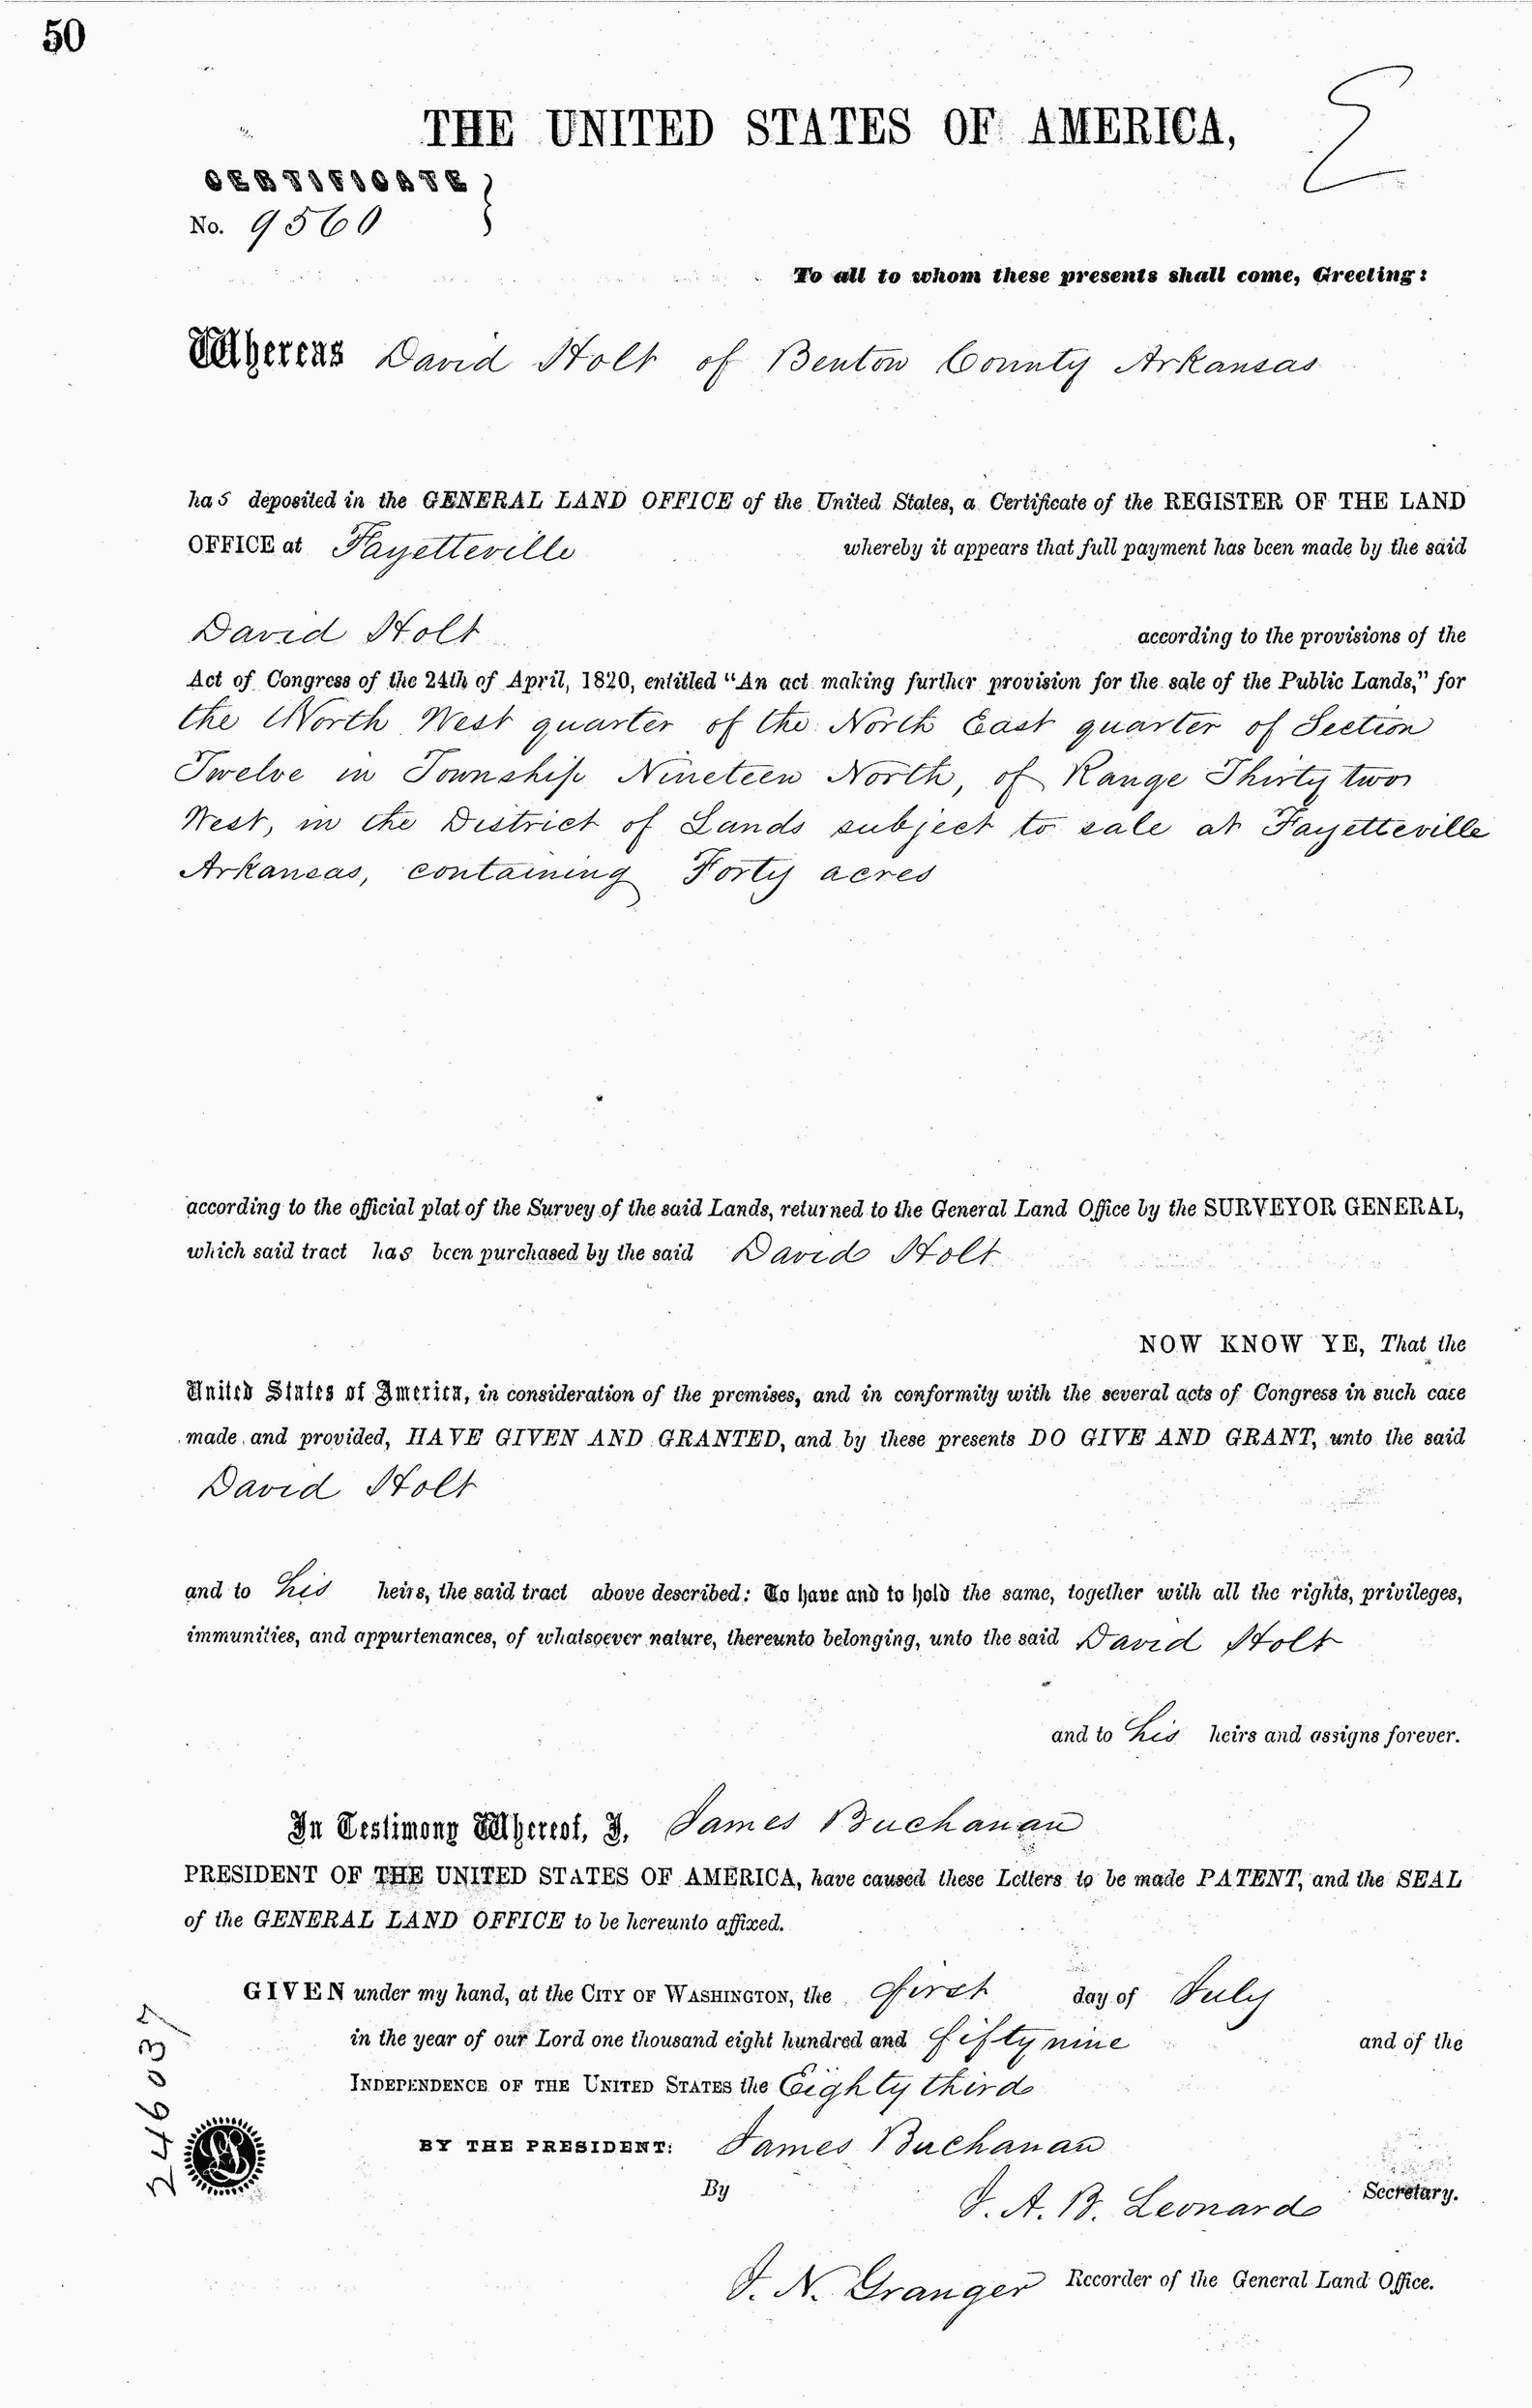 50
THE UNITED STATES OF AMERICA,
CERTIFICATE
No. 9560
To all to whom these presents shall come, Greeting:
Whereas David Holt of Benton County Arkansas
has deposited in the GENERAL LAND OFFICE of the United States, a Certificate of the REGISTER OF THE LAND
OFFICE at Fayetteville whereby it appears that full payment has been made by the said
David Holt according to the provisions of the
Act of Congress of the 24th of April, 1820, entitled "An act making further provision for the sale of the Public Lands," for
the North West quarter of the North East quarter of Section
Twelve in Township Nineteen North, of Range Thirty two
West, in the District of Lands subject to sale at Fayetteville
Arkansas, containing Forty acres
according to the official plat of the Survey of the said Lands, returned to the General Land Office by the SURVEYOR GENERAL,
which said tract has been purchased by the said David Holt
NOW KNOW YE, That the
United States of America, in consideration of the premises, and in conformity with the several acts of Congress in such case
made and provided, HAVE GIVEN AND GRANTED, and by these presents DO GIVE AND GRANT, unto the said
David Holt
and to his heirs, the said tract above described: To have and to hold the same, together with all the rights, privileges,
immunities, and appurtenances, of whatsoever nature, thereunto belonging, unto the said David Holt
and to his heirs and assigns forever.
In Testimony Whereof, I, James Buchanan
PRESIDENT OF THE UNITED STATES OF AMERICA, have caused these Letters to be made PATENT, and the SEAL
of the GENERAL LAND OFFICE to be hereunto affixed.
GIVEN under my hand, at the CITY OF WASHINGTON, the first day of July
in the year of our Lord one thousand eight hundred and fifty nine and of the
INDEPENDENCE OF THE UNITED STATES the Eighty third
BY THE PRESIDENT: James Buchanan
By J. A. B. Leonard Secretary.
J. N. Granger Recorder of the General Land Office.
246037